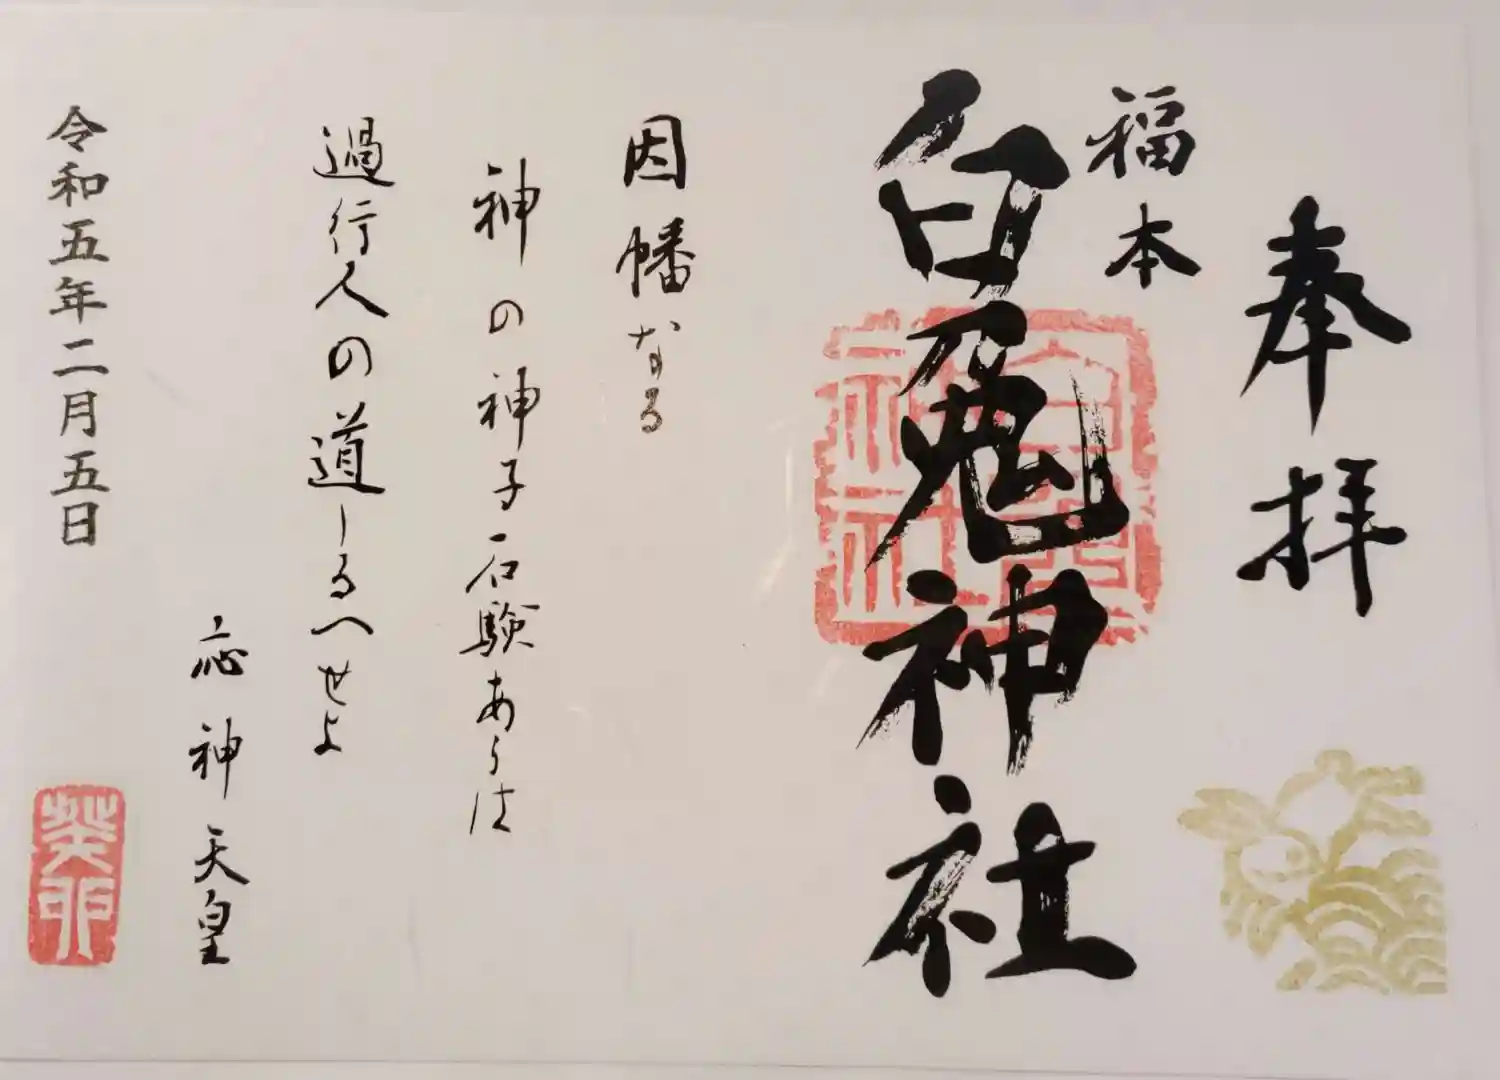 奉拝
福本
白兎神社
白兎神社
因幡なる
神の神子石験あらは
過行人の道しるへせよ
応神天皇
令和五年二月五日
癸卯